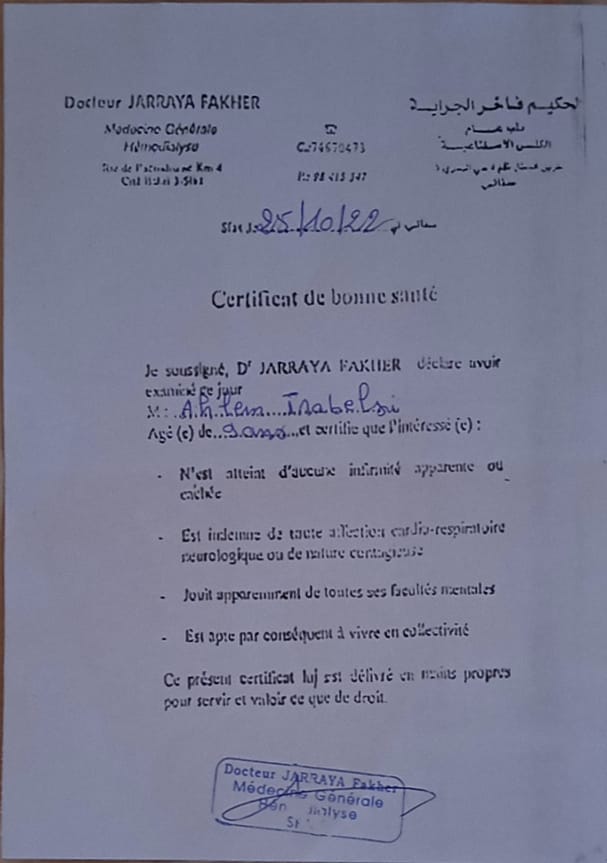 Docteur JARRAYA FAKHER
Médecine Générale
Hémodialyse
الحكيم فاخر الجراية
طب عام
الكلى الاصطناعية
صفاقس
25/10/22
صفاقس في
Certificat de bonne santé
Je soussigné, Dr JARRAYA FAKHER déclare avoir
examiné ce jour
M : Ahlem Trabelsi
Agé (e) de 9 ans et certifie que l'intéressé (e) :
- N'est atteint d'aucune infirmité apparente ou
cachée
- Est indemne de toute affection cardio-respiratoire
neurologique ou de nature contagieuse
- Jouit apparemment de toutes ses facultés mentales
- Est apte par conséquent à vivre en collectivité
Ce présent certificat lui est délivré en mains propres
pour servir et valoir ce que de droit.
Docteur JARRAYA Fakher
Médecine Générale